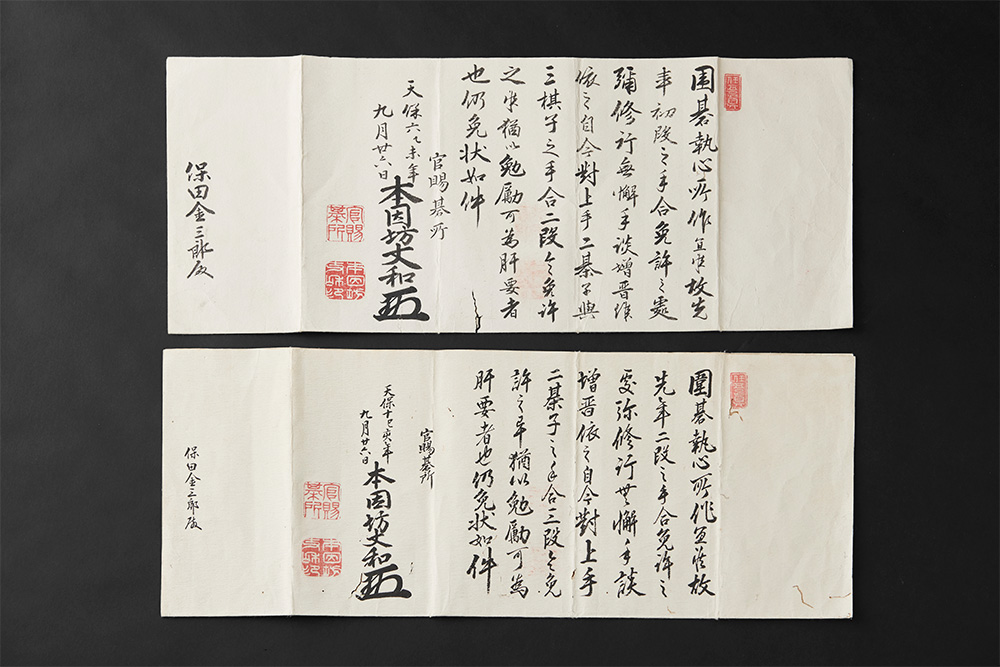 囲碁執心所作宜敷故先
年初段之手合免許之處
彌修行無懈手談增晋依
依之自今對上手二碁子與
三棋子之手合二段令免許
之畢猶以勉勵可為肝要者
也仍免状如件
官賜碁所
天保六乙未年
九月廿六日
本因坊丈和
官賜
碁所
本因坊
保田金三郎殿
圍碁執心所作宜敷故
先年二段之手合免許之
處弥修行無懈手談
增晋依之自今對上手
二棊子之手合三段令免
許之畢猶以勉勵可為
肝要者也仍免状如件
官賜碁所
天保十己亥年
九月廿六日
本因坊丈和
官賜
碁所
本因坊
保田金三郎殿